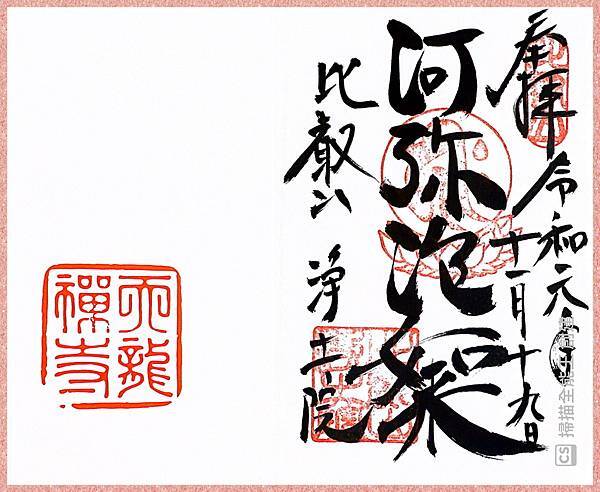 奉拝
令和元年
十一月十九日
阿弥陀如来
比叡山
浄土院
天龍
禅寺
CS 掃描全能王創建